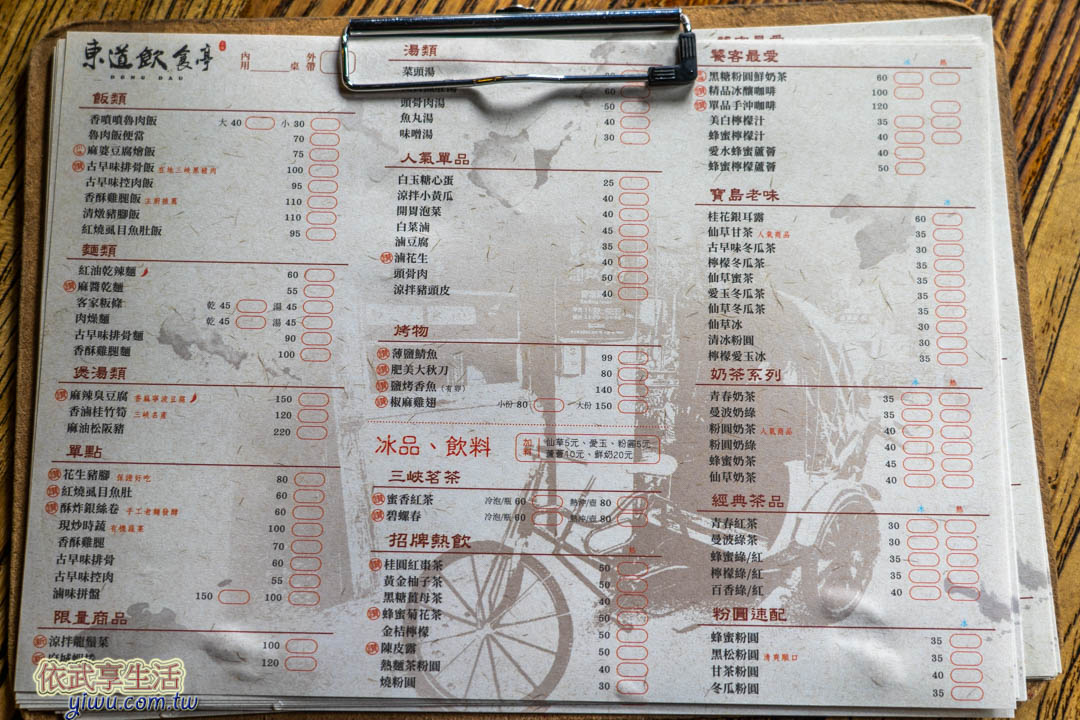 東道飲食亭
DONG DAU
內用 桌 外帶
飯類
香噴噴魯肉飯 大 40 小 30
魯肉飯便當 70
麻婆豆腐燴飯 75
古早味排骨飯 在地三峽黑豬肉 100
古早味控肉飯 95
香酥雞腿飯 主廚推薦 110
清燉豬腳飯 110
紅燒虱目魚肚飯 95
麵類
紅油乾辣麵 60
麻醬乾麵 55
客家粄條 乾 45 湯 45
肉燥麵 乾 45 湯 45
古早味排骨麵 90
香酥雞腿麵 100
煲湯類
麻辣臭豆腐 150
香滷桂竹筍 三峽名產 120
麻油松阪豬 220
單點
花生豬腳 保證好吃 80
紅燒虱目魚肚 60
酥炸銀絲卷 手工老麵發酵 60
現炒時蔬 有機蔬菜 100
香酥雞腿 70
古早味排骨 60
古早味控肉 55
滷味拼盤 150 100
限量商品
涼拌龍鬚菜 100
120
湯類
菜頭湯
60
頭骨肉湯 50
魚丸湯 40
味噌湯 30
人氣單品
白玉糖心蛋 25
涼拌小黃瓜 40
開胃泡菜 40
白菜滷 45
滷豆腐 35
滷花生 40
頭骨肉 50
涼拌豬頭皮 40
烤物
薄鹽鯖魚 99
肥美大秋刀 80
鹽烤香魚 (有卵) 140
椒麻雞翅 小份 80 大份 150
冰品、飲料 加料 仙草5元、愛玉、粉圓5元、蘆薈10元、鮮奶20元
三峽茗茶
蜜香紅茶 冷泡/瓶 60 熱沖/壺 80
碧螺春 冷泡/瓶 60 熱沖/壺 80
招牌熱飲 熱
桂圓紅棗茶 50
黃金柚子茶 50
黑糖薑母茶 40
蜂蜜菊花茶 50
金桔檸檬 50
陳皮露 50
熱麵茶粉圓 40
燒粉圓 30
饕客最愛
饕客最愛 冰 熱
黑糖粉圓鮮奶茶 60
精品冰釀咖啡 100
單品手沖咖啡 120
美白檸檬汁 40
蜂蜜檸檬汁 40
愛水蜂蜜蘆薈 40
蜂蜜檸檬蘆薈 50
寶島老味 冰
桂花銀耳露 60
仙草甘茶 人氣商品 30
古早味冬瓜茶 30
檸檬冬瓜茶 35
仙草蜜茶 35
愛玉冬瓜茶 35
仙草冬瓜茶 35
仙草冰 30
清冰粉圓 30
檸檬愛玉冰 35
奶茶系列 冰 熱
青春奶茶 35
曼波奶綠 35
粉圓奶茶 人氣商品 40
粉圓奶綠 40
蜂蜜奶茶 45
仙草奶茶 40
經典茶品 冰 熱
青春紅茶 30
曼波綠茶 30
蜂蜜綠/紅 35
檸檬綠/紅 35
百香綠/紅 35
粉圓速配 冰
蜂蜜粉圓 35
黑松粉圓 清爽順口 35
甘茶粉圓 40
冬瓜粉圓 35
依武享生活
yiwu.com.tw